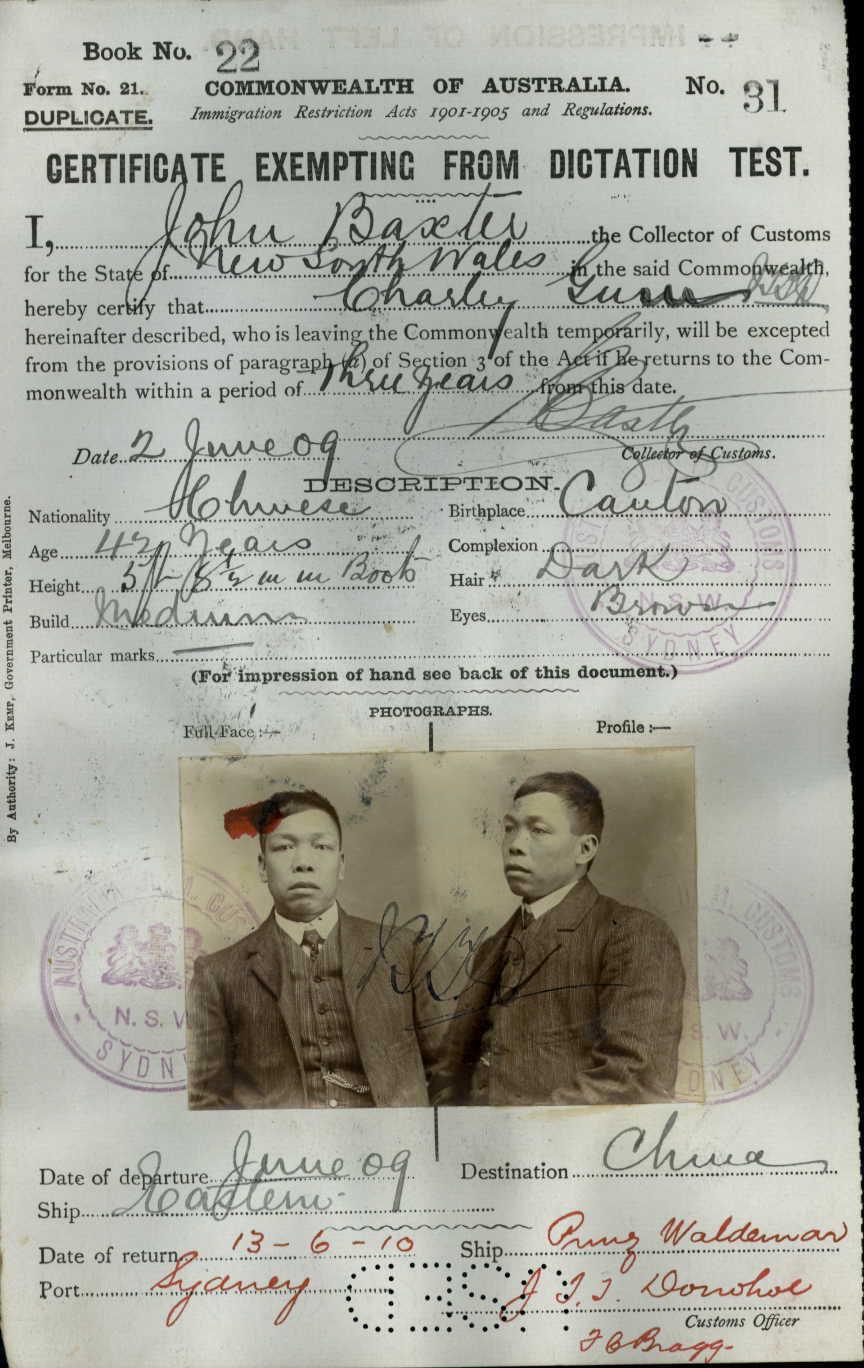 Book No. 22
Form No. 21. COMMONWEALTH OF AUSTRALIA. No. 31
DUPLICATE. Immigration Restriction Acts 1901-1905 and Regulations.
CERTIFICATE EXEMPTING FROM DICTATION TEST.
I, John Baxter the Collector of Customs
for the State of New South Wales in the said Commonwealth,
hereby certify that Charley
hereinafter described, who is leaving the Commonwealth temporarily, will be excepted
from the provisions of paragraph (a) of Section 3 of the Act if he returns to the Com-
monwealth within a period of Three years from this date.
Baxter
Date 2 June 09 Collector of Customs.
DESCRIPTION.
Nationality Chinese Birthplace Canton
Age 42 Years Complexion
Height 5ft 8½ in in Boots Hair Dark
Build Medium Eyes Brown
Particular marks —
(For impression of hand see back of this document.)
PHOTOGRAPHS.
Full Face :— Profile :—
By Authority: J. KEMP, Government Printer, Melbourne.
N. S. W.
SYDNEY
AUSTRALIA
CUSTOMS
N. S. W.
SYDNEY
CUSTOMS
S. W.
DNEY
Date of departure June 09 Destination China
Ship Eastern
Date of return 13-6-10 Ship Prinz Waldemar
Port Sydney J. T. T. Donohoe
Customs Officer
Bragg